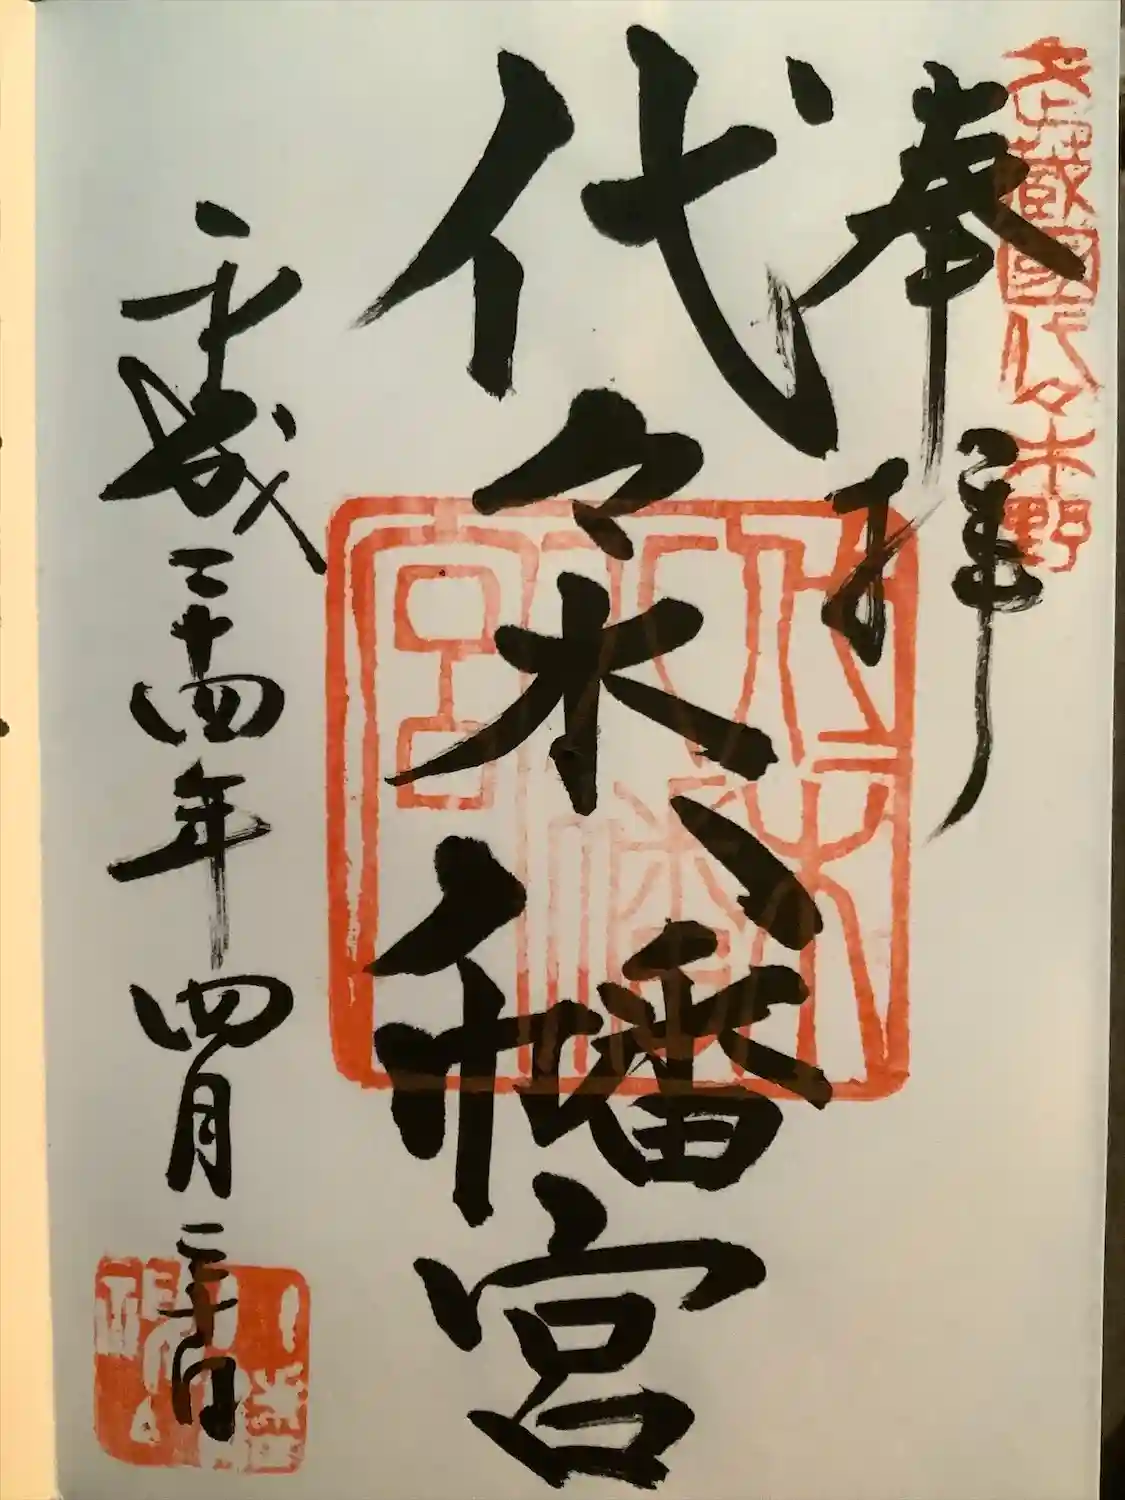 武蔵國代々木野
奉拝
代々木八幡宮
平成二十四年四月二十日
代々木八幡宮